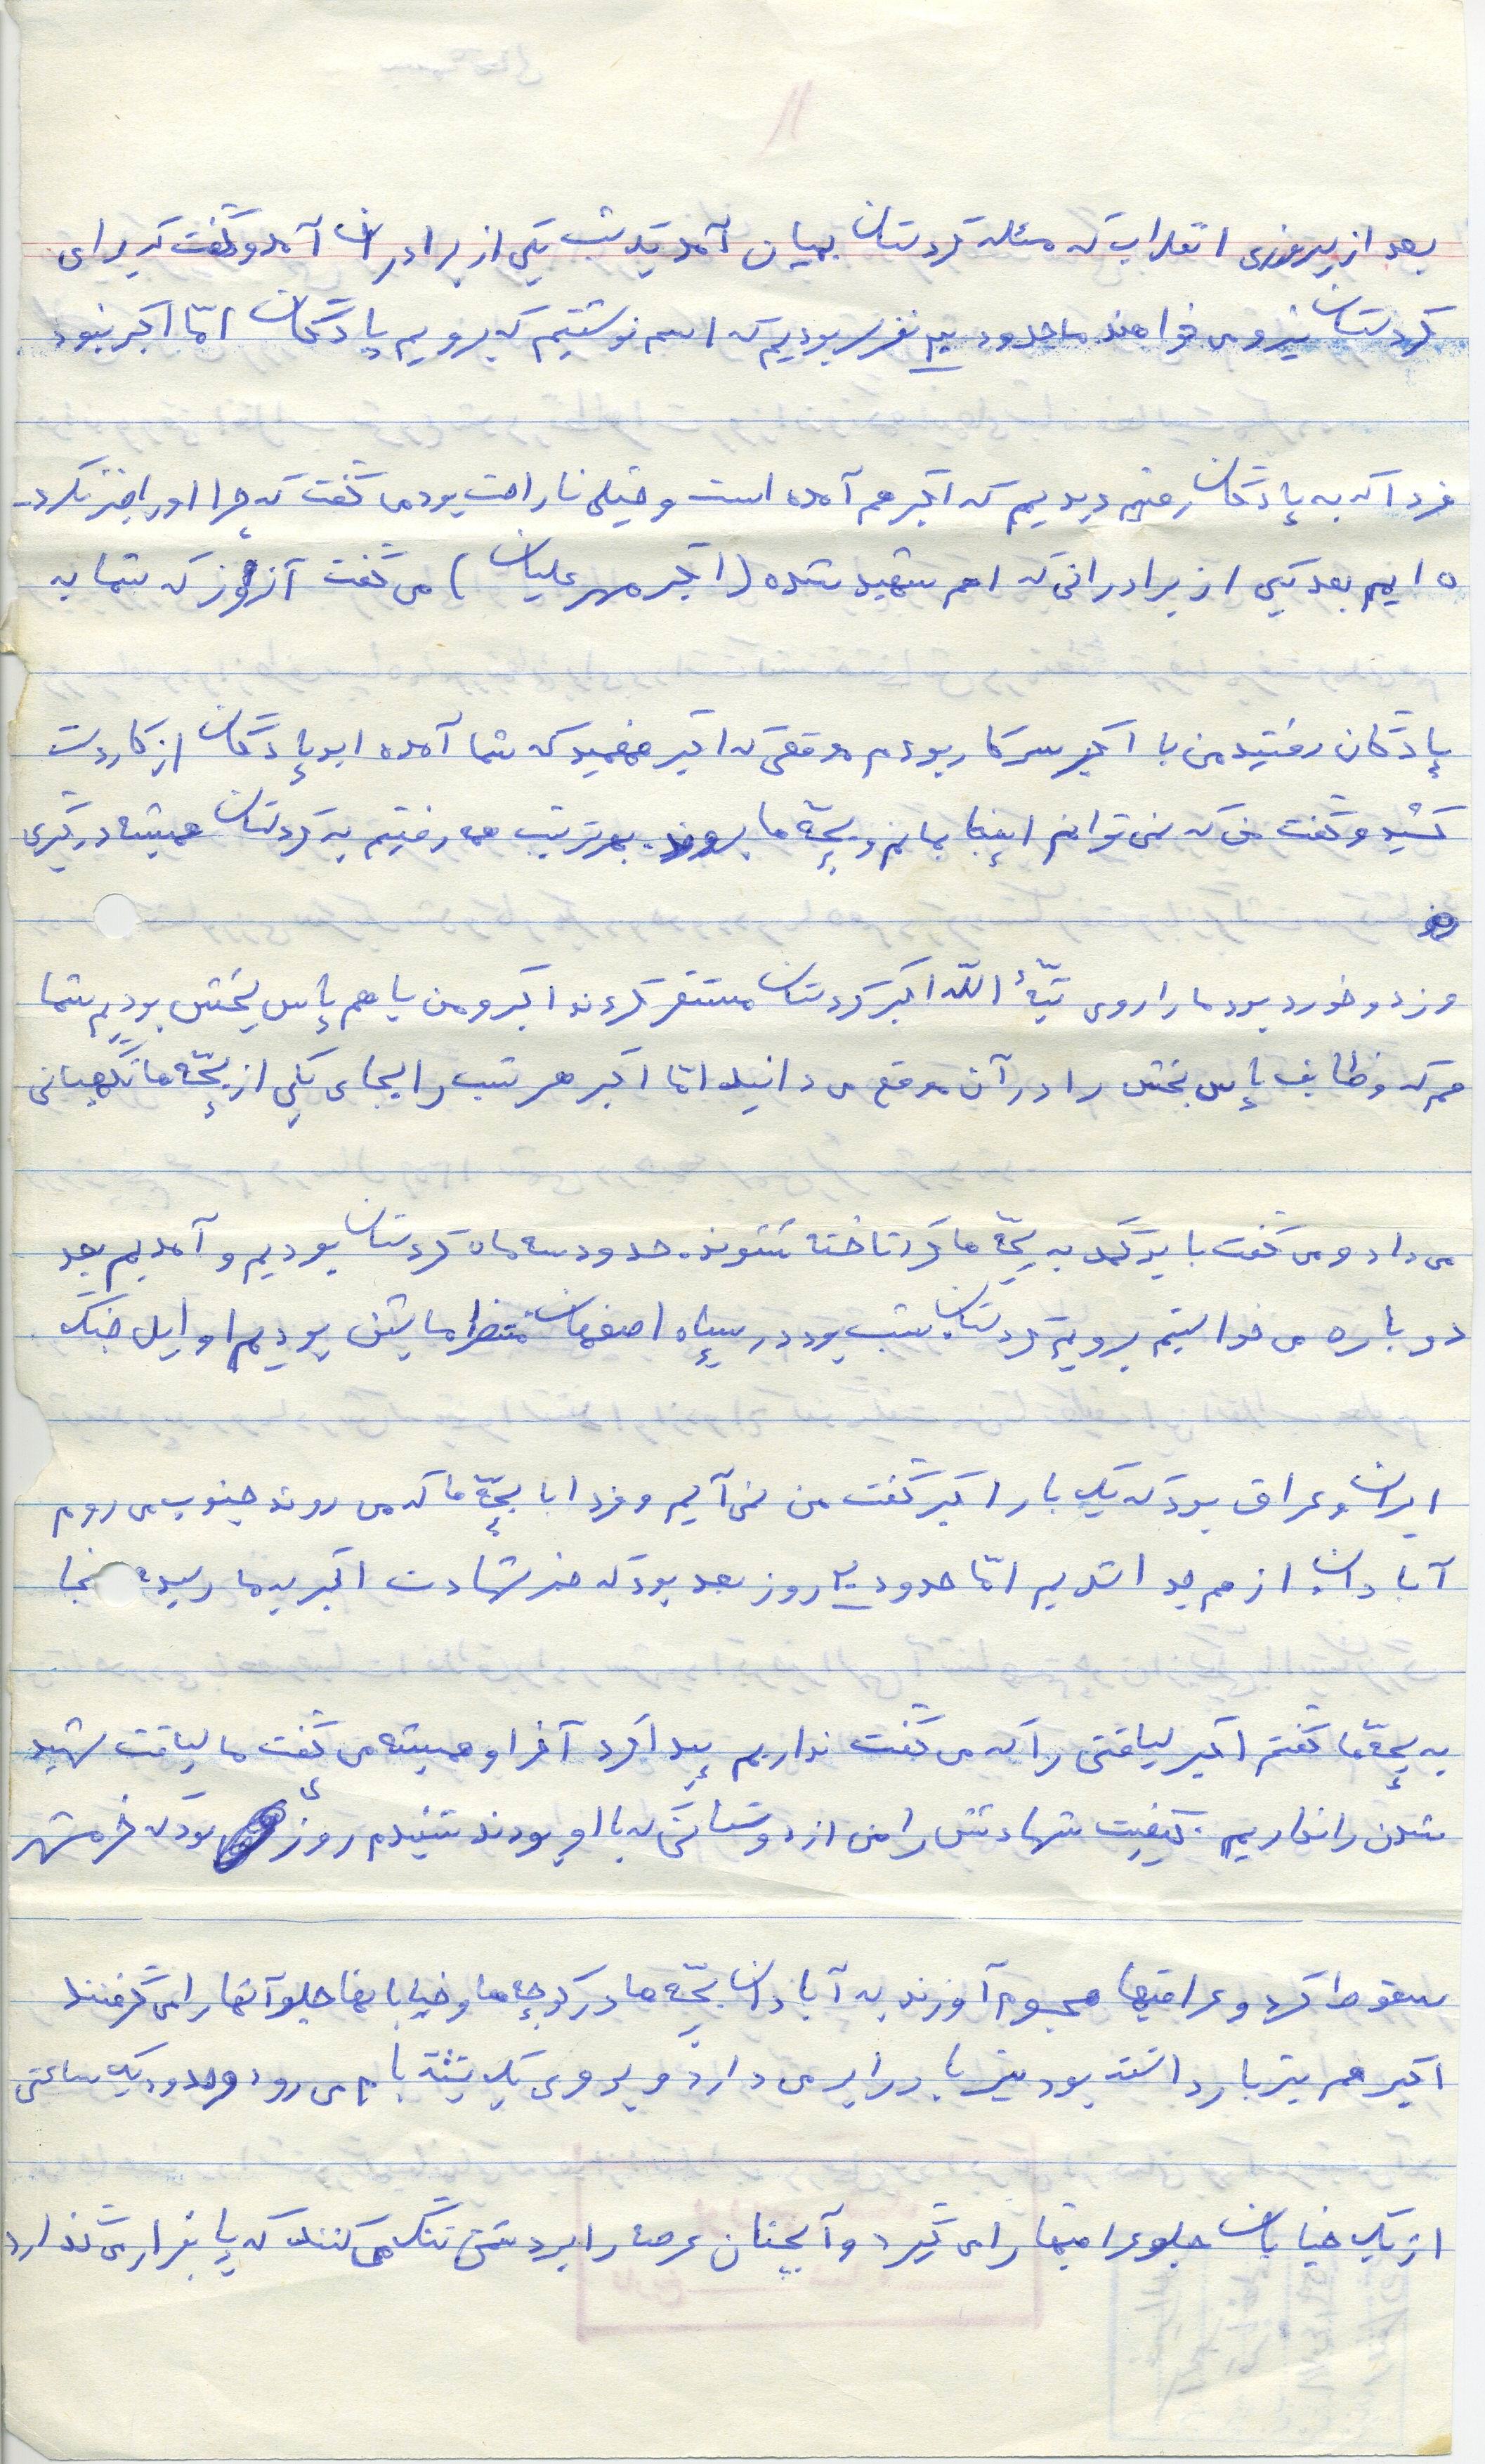 بعد از پیروزی انقلاب که مسئله کردستان بمیان آمد یک شب یکی از برادران آمد و گفت که برای
کردستان نیرو می خواهند ما حدود نفر بودیم که اسم نوشتیم که برویم پادگان امّا اکبر نبود
فردا که به پادگان رفتیم دیدیم که اکبر هم آمده است و خیلی ناراحت بود می گفت که چرا او را خبر نکرد
ه ایم بعد یکی از برادرانی که او هم شهید شده (اکبر مهر علیان) می گفت آنروز که شما به
پادگان رفتید من با اکبر سر کار بودم موقعی که اکبر فهمید که شما آمده اید پادگان از کار دست
کشید و گفت من که نمی توانم اینجا بمانم و بچّه ها بروند. بهر ترتیب همه رفتیم به کردستان همیشه درگیری
و زد و خورد بود ما را روی تپّهٔ اللّه اکبر کردستان مستقر کردند اکبر و من با هم پاس بخش بودیم شما
هم که وظایف پاس بخش را در آن موقع می دانید امّا اکبر هر شب را بجای یکی از بچّه ها نگهبانی
می داد و می گفت باید کمک به بچّه ها کرد تا خسته نشوند. حدود سه ماه کردستان بودیم و آمدیم بعد
دوباره می خواستیم برویم کردستان. شب بود در سپاه اصفهان منتظر ماشین بودیم اوایل جنگ
ایران و عراق بود که یک بار اکبر گفت من نمی آیم و فردا با بچّه ها که می روند جنوب می روم
آبادان. از هم جدا شدیم امّا حدود روز بعد بود که خبر شهادت اکبر به ما رسید
به بچّه ها گفتم اکبر لیاقتی را که می گفت نداریم پیدا کرد آخر او همیشه می گفت ما لیاقت شهید
شدن را نداریم. کیفیت شهادتش را من از دوستانی که با او بودند شنیدم روزی بود که خرمشهر
سقوط کرد و عراقیها هجوم آوزند به آبادان بچّه ها در کوچه ها و خیابانها جلو آنها را می گرفتند
اکبر هم تیربار داشته بود تیربار را بر می دارد و بر روی یک پشته بام می رود و حدود یک ساعتی
از یک خیابان جلو عراقیها را می گیرد و آنچنان عرصه را بر دشمن تنگ می کنند که پا بفرار می گذارد